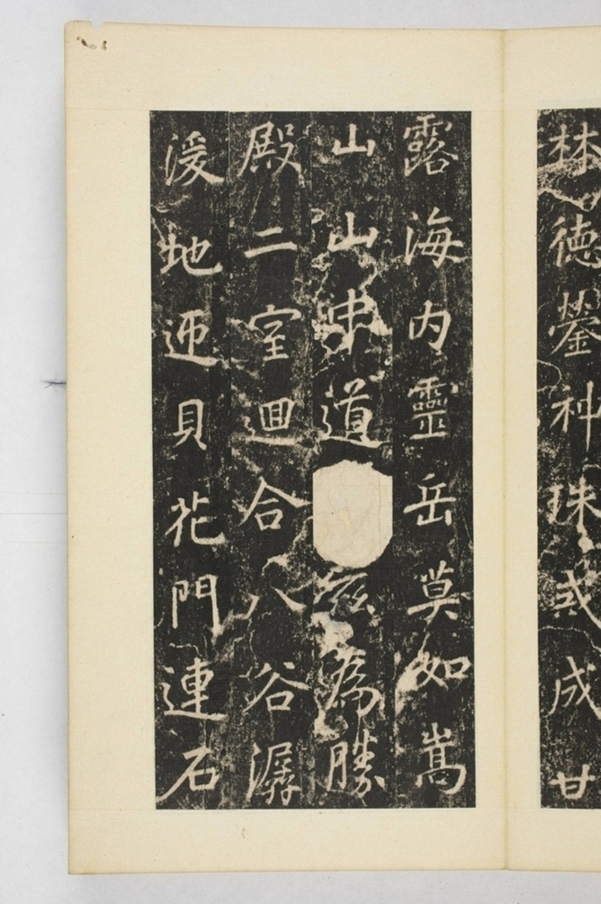 林德鎣神珠或成甘
露海内靈岳莫如嵩
山山中道兹為勝
殿二室迴合八谷潺
湲地迊貝花門連石